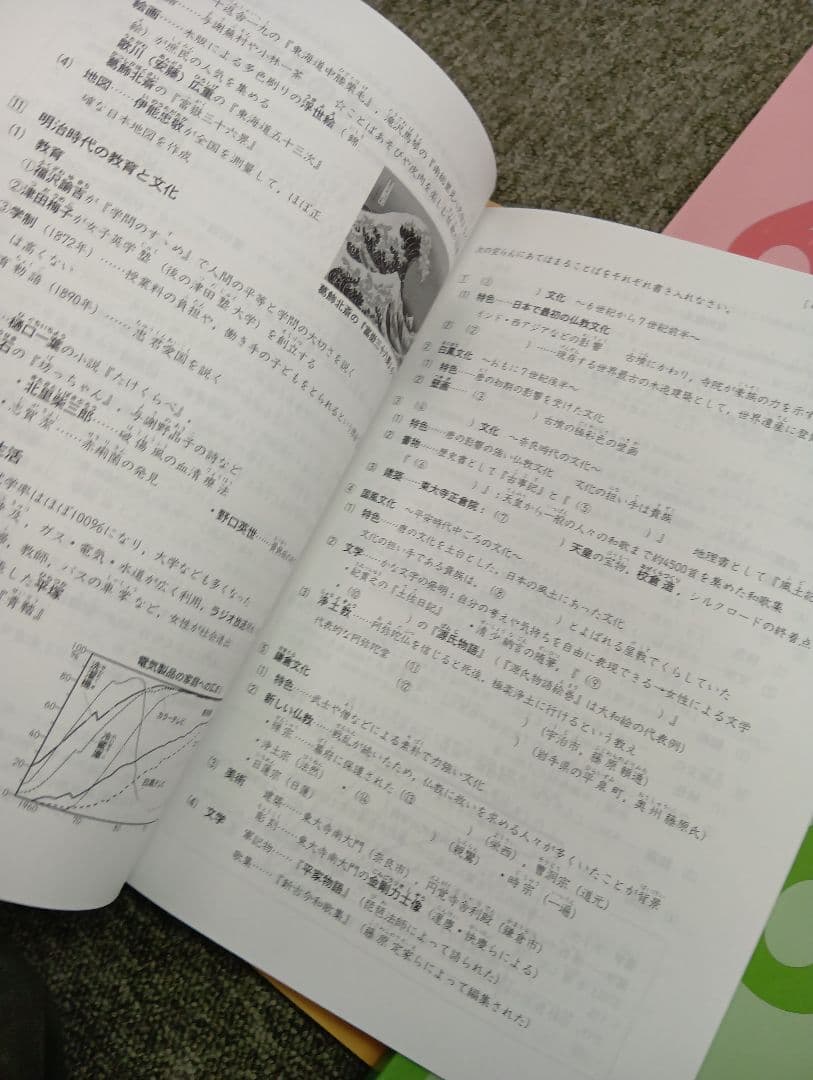 十返舎一九の『東海道中膝栗毛』，滝沢馬琴の『南総里見八犬伝』
与謝蕪村や小林一茶
☆ことばあそびや皮肉を楽しむ
絵画……木版による多色刷りの浮世絵（錦
絵）が庶民の人気を集める
歌川（安藤）広重の『東海道五十三次』
葛飾北斎の『富嶽三十六景』
(4) 地図……伊能忠敬が全国を測量して，ほぼ正
確な日本地図を作成
葛飾北斎の『富嶽三十六景』
11 明治時代の教育と文化
(1) 教育
①福沢諭吉が『学問のすゝめ』で人間の平等と学問の大切さを説く
②津田梅子が女子英学塾（後の津田塾大学）を創立する
③学制（1872年）……授業料の負担や，働き手の子どもをとられるという
は高くない
育勅語（1890年）……忠君愛国を説く
樋口一葉の小説『たけくらべ』
石の『坊っちゃん』，与謝野晶子の詩など
・北里柴三郎……破傷風の血清療法
・志賀潔……赤痢菌の発見
・野口英世……黄熱病の
生活
就学率はほぼ100％になり，大学なども多くなった
ガス・電気・水道が広く利用，ラジオ放送
教師，バスの車掌など，女性が社会進出
した平塚
『青鞜』
電気製品の家庭への広
100
%
80
60
40
20
0
1960
70
洗濯機
冷蔵庫
カラーテレビ
白黒テレビ
次の空らんにあてはまることばをそれぞれ書き入れなさい。
1 （① ）文化 〜6世紀から7世紀前半〜
(1) 特色……日本で最初の仏教文化
インド・西アジアなどの影響 古墳にかわり，寺院が豪族の力を示す
(2) （② ）……現存する世界最古の木造建築として，世界遺産に登録
2 白鳳文化 〜おもに7世紀後半〜
(1) 特色……唐の初期の影響を受けた文化
(2) 壁画……（③ ）古墳の極彩色の壁画
3 （④ ）文化 〜奈良時代の文化〜
(1) 特色……唐の影響の強い仏教文化 文化の担い手は貴族
(2) 書物……歴史書として『古事記』と『（⑤ ）』 地理書として『風土記
『（⑥ ）』：天皇から一般の人々の和歌まで約4500首を集めた和歌集
(3) 建築……東大寺正倉院：（⑦ ）天皇の宝物，校倉造，シルクロードの終着点
4 国風文化 〜平安時代中ごろの文化〜
(1) 特色……唐の文化を土台とした，日本の風土にあった文化
文化の担い手である貴族は，（⑧ ）とよばれる屋敷でくらしていた
(2) 文学……かな文字の発明：自分の考えや気持ちを自由に表現できる→女性による文字
・紀貫之の『土佐日記』 ・清少納言の随筆，『（⑨ ）』
・（⑩ ）の『源氏物語』（『源氏物語絵巻』は大和絵の代表例）
(3) 浄土教……阿弥陀仏を信じると死後，極楽浄土に行けるという教え
代表的な阿弥陀堂 （⑪ ）（宇治市，藤原頼通）
（⑫ ）（岩手県の平泉町，奥州藤原氏）
5 鎌倉文化
(1) 特色……武士や僧などによる素朴で力強い文化
(2) 新しい仏教……戦乱が続いたため，仏教に救いを求める人々が多くいたことが背景
・禅宗……幕府に保護された（⑬ ）（栄西），曹洞宗（道元）
・浄土宗（法然） ・（⑭ ）（親鸞） ・時宗（一遍）
・日蓮宗（日蓮）
(3) 美術 建築……東大寺南大門（奈良市），円覚寺舎利殿（鎌倉市）
彫刻……東大寺南大門の金剛力士像（運慶・快慶らによる）
(4) 文学 軍記物……『平家物語』（琵琶法師によって語られた）
歌集……『新古今和歌集』（藤原定家らによって編集された）